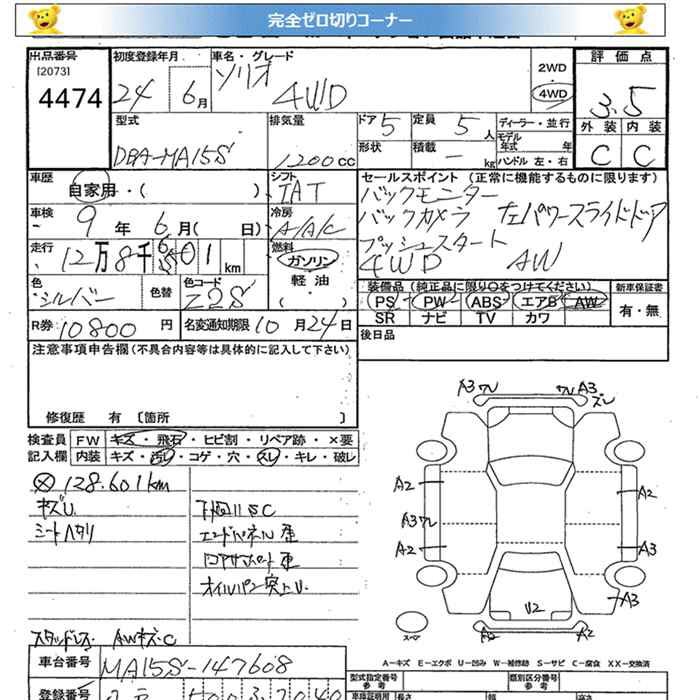 完全ゼロ切りコーナー
出品番号 初度登録年月 車名・グレード 評価点
[2073]
4474 24 6月 ソリオ 4WD 2WD 4WD 3.5
外装 内装
C C
型式 排気量 ドア 5 定員 5人 ディーラー・並行
モデル年式 年
DBA-MA15S 1200cc 形状 積載 - kg ハンドル 左・右
車歴 自家用・( ) シフト IAT セールスポイント(正常に機能するものに限ります)
バックモニター
車検 9年 6月( 日) 冷房 A/A/C バックカメラ 左パワースライドドア
プッシュスタート
走行 12万8千601km 燃料 ガソリン 軽油 ( ) 4WD AW
色 シルバー 色替 色コード Z2S 装備品(純正品に限り○をつけてください) 新車保証書
PS PW ABS エアB AW 有・無
SR ナビ TV カワ
R券 10800円 名変通知期限 10月24日 後日品
注意事項申告欄(不具合内容等は具体的に記入して下さい)
修復歴 有 〔箇所 〕
検査員 FW キズ・飛石・ヒビ割・リペア跡・×要
記入欄 内装 キズ・汚レ・コゲ・穴・スレ・キレ・破レ
⊗ 128.601km
キズU
シートヘタリ
下回りSC
エンドパネル歪
コアサポート歪
オイルパン突上U
スタッドレス AWキズ・C
A3ワレ ワレA3
ズレ
A2 A2
A3ワレ
A2 A3
A3
U2
A2 A2
スペア
A-キズ E-エクボ U-凹み W-補修跡 S-サビ C-腐食 XX-交換済
車台番号 MA15S-147608
登録番号
型式指定番号 参考 類別区分番号 参考
長さ